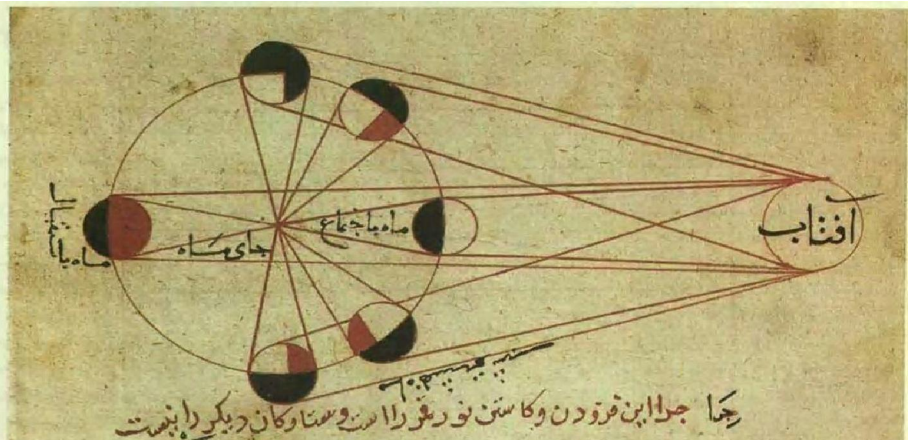 آفتاب
ماه باجتماع
جای ماه
ماه باستقبال
چرا این فزودن و کاستن نور قمر را است و ستارکان دیکر را نیست